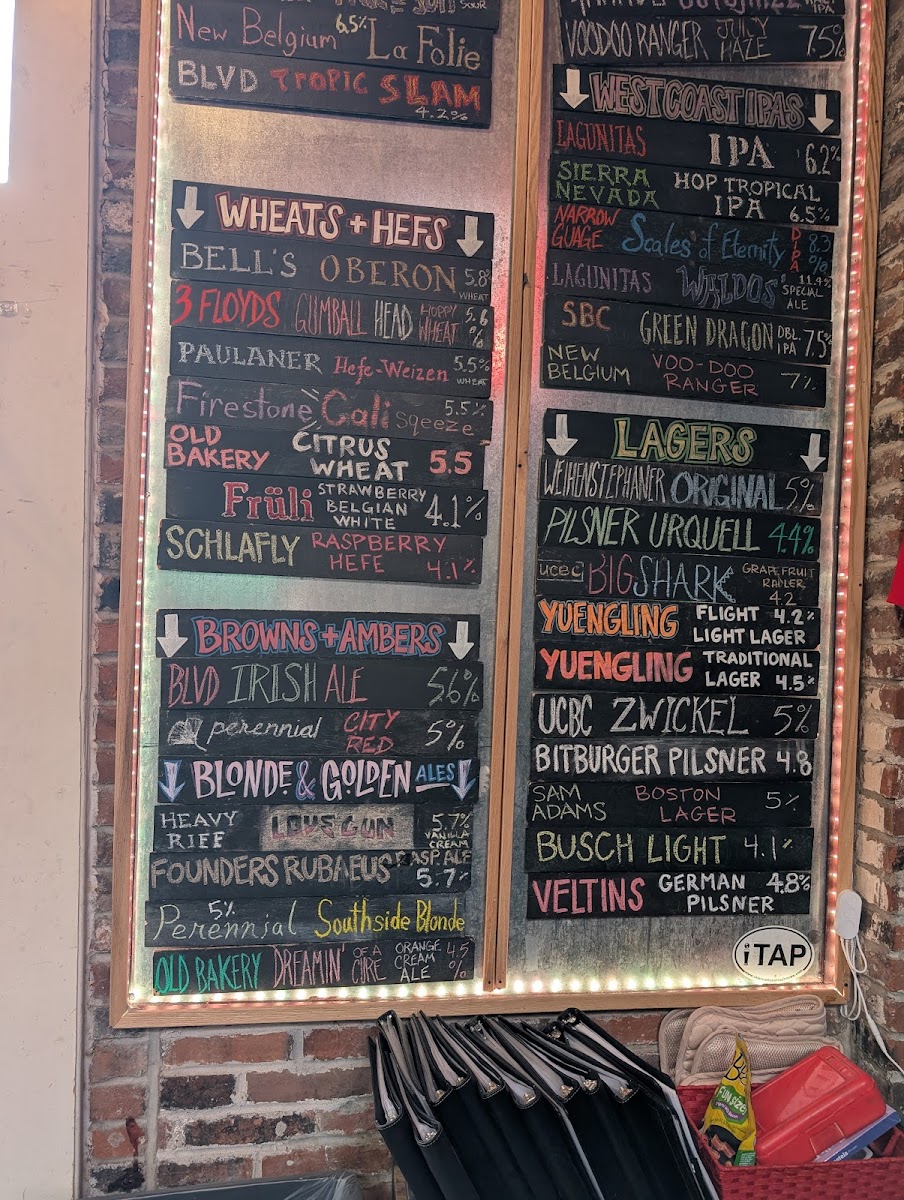 SOUR
New Belgium 6.5% La Folie
BLVD TROPIC SLAM
4.2%
WHEATS + HEFS
BELL'S OBERON 5.8
WHEAT
3 FLOYDS GUMBALL HEAD HOPPY WHEAT 5.6 %
PAULANER Hefe-Weizen 5.5%
WHEAT
Firestone Cali Sqeeze 5.5%
OLD BAKERY CITRUS WHEAT 5.5
Früli STRAWBERRY BELGIAN WHITE 4.1%
SCHLAFLY RASPBERRY HEFE 4.1%
BROWNS + AMBERS
BLVD IRISH ALE 5.6%
perennial CITY RED 5%
BLONDE & GOLDEN ALES
HEAVY RIFF LOVE GUN 5.7%
VANILLA CREAM
FOUNDERS RUBAEUS RASP. ALE
5.7%
Perennial 5% Southside Blonde
OLD BAKERY DREAMIN' OF A CURE ORANGE CREAM ALE 4.5 %
IPA
VOODOO RANGER JUICY HAZE 7.5%
WEST COAST IPAS
LAGUNITAS IPA 6.2%
SIERRA NEVADA HOP TROPICAL IPA 6.5%
NARROW GUAGE Scales of Eternity DIPA 8.3 %
LAGUNITAS WALDOS 11.4% SPECIAL ALE
SBC GREEN DRAGON DBL. IPA 7.5%
NEW BELGIUM VOO-DOO RANGER 7%
LAGERS
WEIHENSTEPHANER ORIGINAL 5%
PILSNER URQUELL 4.4%
UCBC BIG SHARK GRAPEFRUIT RADLER
4.2
YUENGLING FLIGHT 4.2%
LIGHT LAGER
YUENGLING TRADITIONAL
LAGER 4.5%
UCBC ZWICKEL 5%
BITBURGER PILSNER 4.8
SAM ADAMS BOSTON LAGER 5%
BUSCH LIGHT 4.1%
VELTINS GERMAN PILSNER 4.8%
iTAP
FUN SIZE